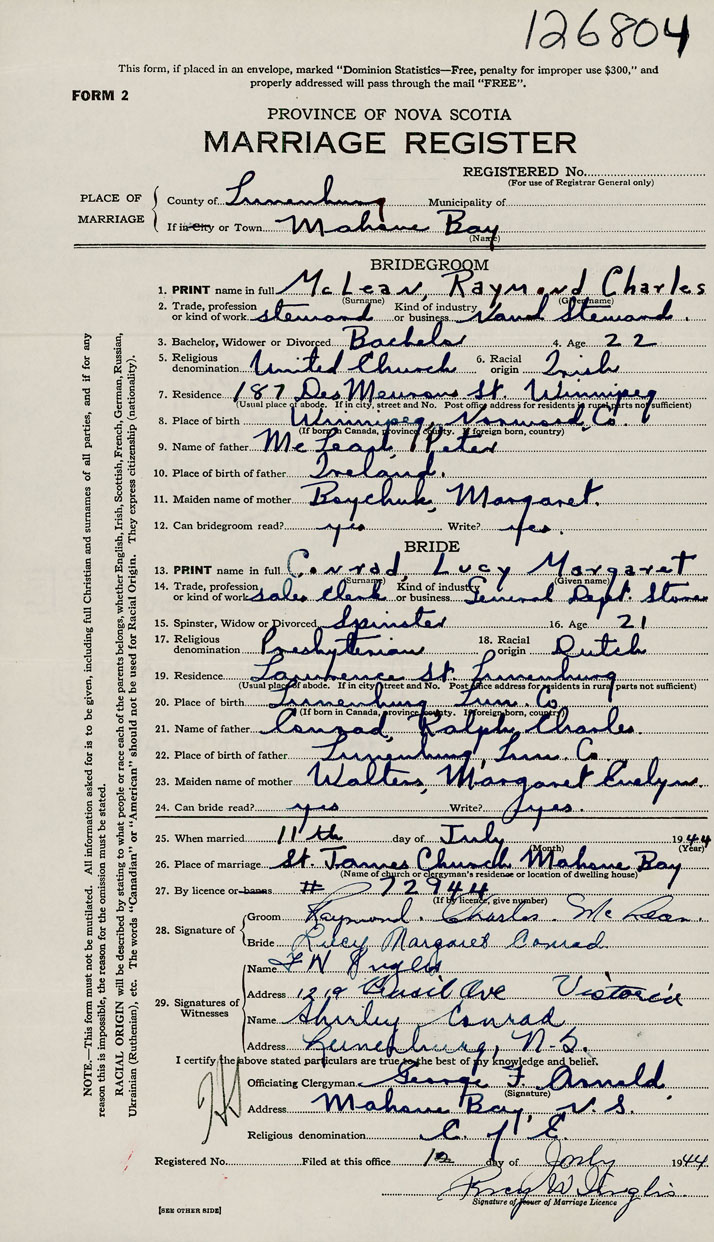 126804
This form, if placed in an envelope, marked "Dominion Statistics—Free, penalty for improper use $300," and
properly addressed will pass through the mail "FREE".
FORM 2
PROVINCE OF NOVA SCOTIA
MARRIAGE REGISTER
REGISTERED No.
(For use of Registrar General only)
PLACE OF MARRIAGE
County of Lunenburg Municipality of
If in City or Town Mahone Bay
(Name)
BRIDEGROOM
1. PRINT name in full McLean, Raymond Charles
(Surname) (Given name)
2. Trade, profession or kind of work steward Kind of industry or business Naval Steward.
3. Bachelor, Widower or Divorced Bachelor 4. Age 22
5. Religious denomination United Church 6. Racial origin Irish
7. Residence 187 Des Meurons St. Winnipeg
(Usual place of abode. If in city, street and No. Post office address for residents in rural parts not sufficient)
8. Place of birth Winnipeg, Norwood Co.
(If born in Canada, province, county. If foreign born, country)
9. Name of father McLean, Peter
10. Place of birth of father Ireland.
11. Maiden name of mother Boychuk, Margaret.
12. Can bridegroom read? yes Write? yes.
BRIDE
13. PRINT name in full Conrad, Lucy Margaret
(Surname) (Given name)
14. Trade, profession or kind of work sales clerk Kind of industry or business General Dept. Store
15. Spinster, Widow or Divorced Spinster 16. Age 21
17. Religious denomination Presbyterian 18. Racial origin Dutch
19. Residence Lawrence St. Lunenburg
(Usual place of abode. If in city street and No. Post office address for residents in rural parts not sufficient)
20. Place of birth Lunenburg Lun. Co
(If born in Canada, province, county. If foreign born, country)
21. Name of father Conrad, Ralph Charles.
22. Place of birth of father Lunenburg, Lun. Co
23. Maiden name of mother Walters, Margaret Evelyn.
24. Can bride read? yes Write? yes.
25. When married 11th day of July 1944
(Month) (Year)
26. Place of marriage St. James Church Mahone Bay
(Name of church or clergyman's residence or location of dwelling house)
27. By licence or banns # 72944
(If by licence, give number)
28. Signature of
Groom Raymond Charles McLean.
Bride Lucy Margaret Conrad
29. Signatures of Witnesses
Name F W Inglis
Address 1219 Victoria
Name Shirley Conrad
Address Lunenburg, N-S.
I certify the above stated particulars are true to the best of my knowledge and belief.
Officiating Clergyman George F. Arnold
(Signature)
Address Mahone Bay, N.S.
Religious denomination C. of E.
Registered No. Filed at this office 12 day of July 1944
Percy W Inglis
Signature of Issuer of Marriage Licence
[SEE OTHER SIDE]
NOTE.—This form must not be mutilated. All information asked for is to be given, including full Christian and surnames of all parties, and if for any
reason this is impossible, the reason for the omission must be stated.
RACIAL ORIGIN will be described by stating to what people or race each of the parents belongs, whether English, Irish, Scottish, French, German, Russian,
Ukrainian (Ruthenian), etc. The words "Canadian" or "American" should not be used for Racial Origin. They express citizenship (nationality).